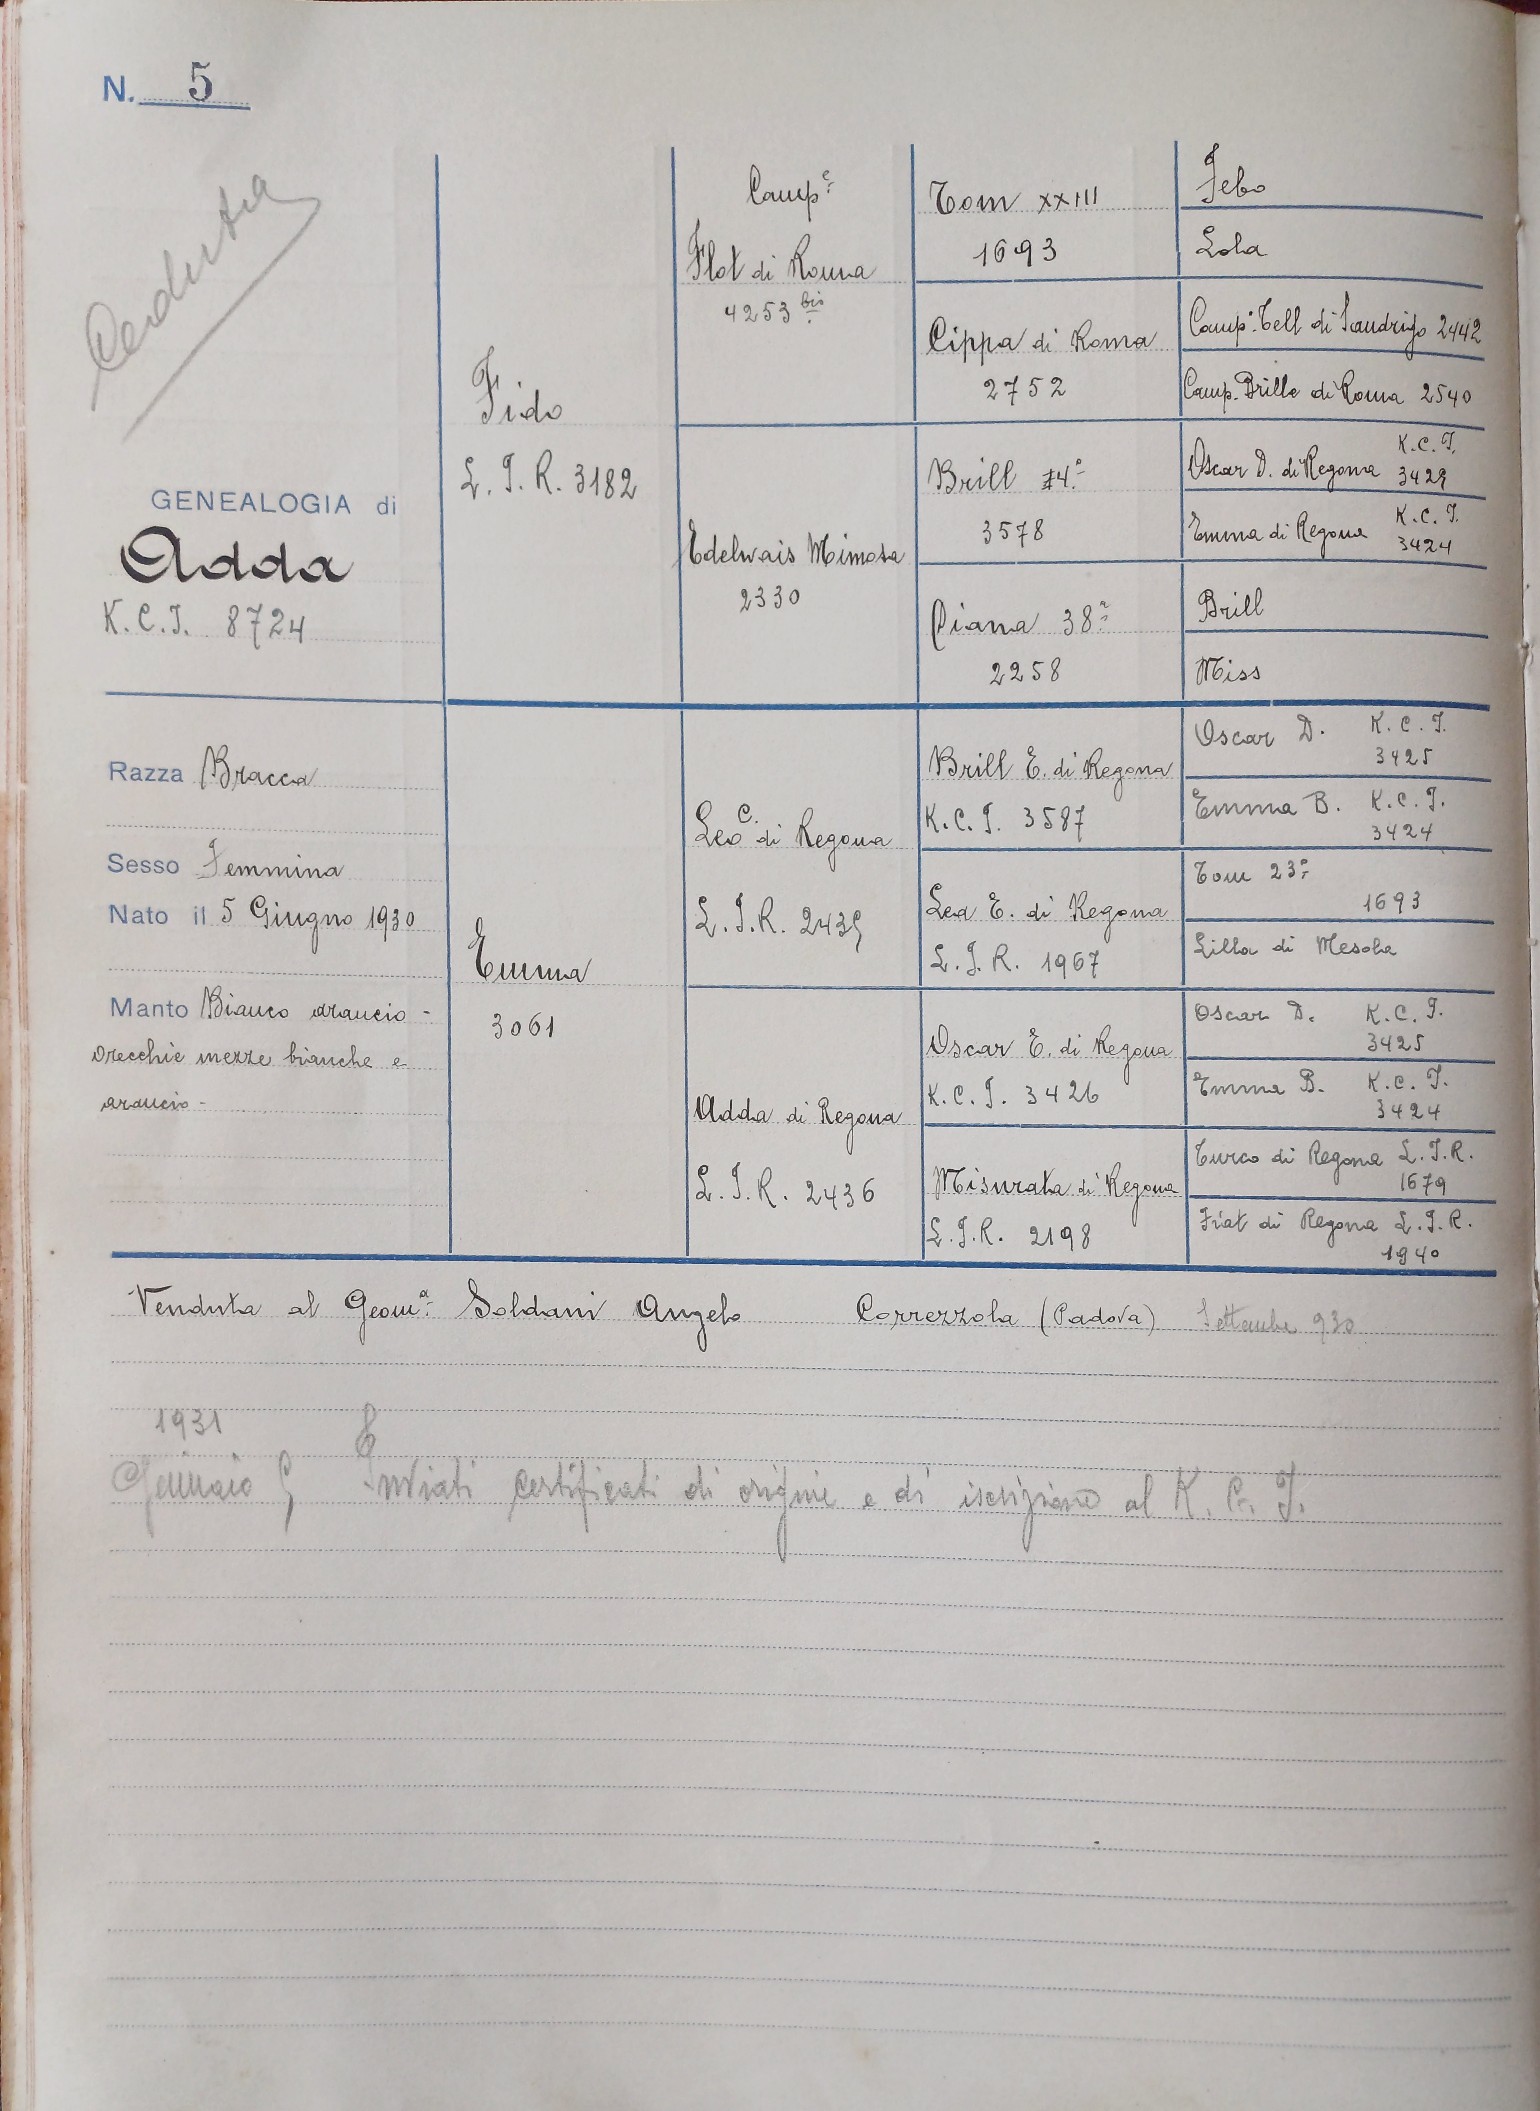 N. 5
Ceduta
GENEALOGIA di
Adda
K.C.I. 8724
Razza Bracca
Sesso Femmina
Nato il 5 Giugno 1930
Manto Bianco arancio -
orecchie mezze bianche e
arancio -
Fido
L.I.R. 3182
Emma
3061
Camp.e
Flot di Roma
4253 bis
Edelwais Mimosa
2330
Leo C. di Regona
L.I.R. 2435
Adda di Regona
L.I.R. 2436
Tom XXIII
1693
Cippa di Roma
2752
Brill 74°
3578
Diana 38a
2258
Brill E. di Regona
K.C.I. 3587
Lea E. di Regona
L.I.R. 1967
Oscar E. di Regona
K.C.I. 3426
Misurata di Regona
L.I.R. 2198
Febo
Lola
Camp. Tell di Sandrigo 2442
Camp. Brilla di Roma 2540
Oscar D. di Regona K.C.I.
3425
Emma di Regona K.C.I.
3424
Brill
Miss
Oscar D. K.C.I.
3425
Emma B. K.C.I.
3424
Tom 23°
1693
Lilla di Mesola
Oscar D. K.C.I.
3425
Emma B. K.C.I.
3424
Turco di Regona L.I.R.
1679
Fiat di Regona L.I.R.
1940
Venduta al Geom.a Soldani Angelo Correzzola (Padova) Settembre 930
1931
Gennaio 5 Inviati certificati di origine e di iscrizione al K.C.I.